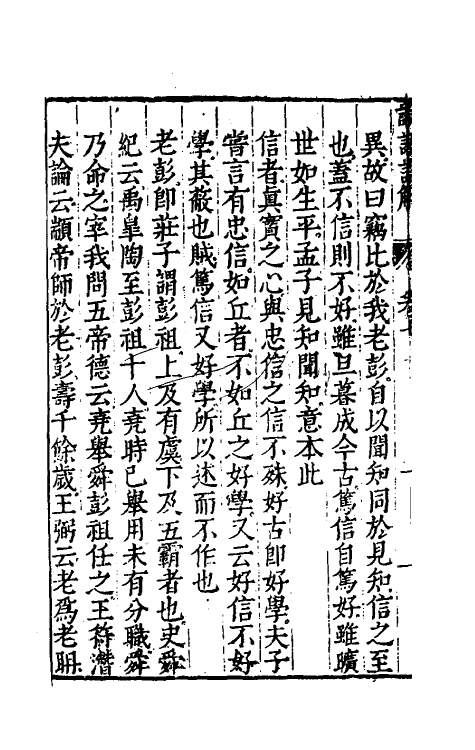 異故曰竊比於我老彭自以聞知同於見知信之至
也蓋不信則不好雖旦暮成今古篤信自篤好雖曠
世如生平孟子見知聞知意本此
信者真實之心與忠信之信不殊好古即好學夫子
嘗言有忠信如丘者不如丘之好學又云好信不好
學其蔽也賊篤信又好學所以述而不作也
老彭即莊子謂彭祖上及有虞下及五霸者也史舜
紀云禹皐陶至彭祖十人堯時已舉用未有分職舜
乃命之宰我問五帝德云堯舉舜彭祖任之王符潛
夫論云顓帝師於老彭壽千餘歲王弼云老為老耼